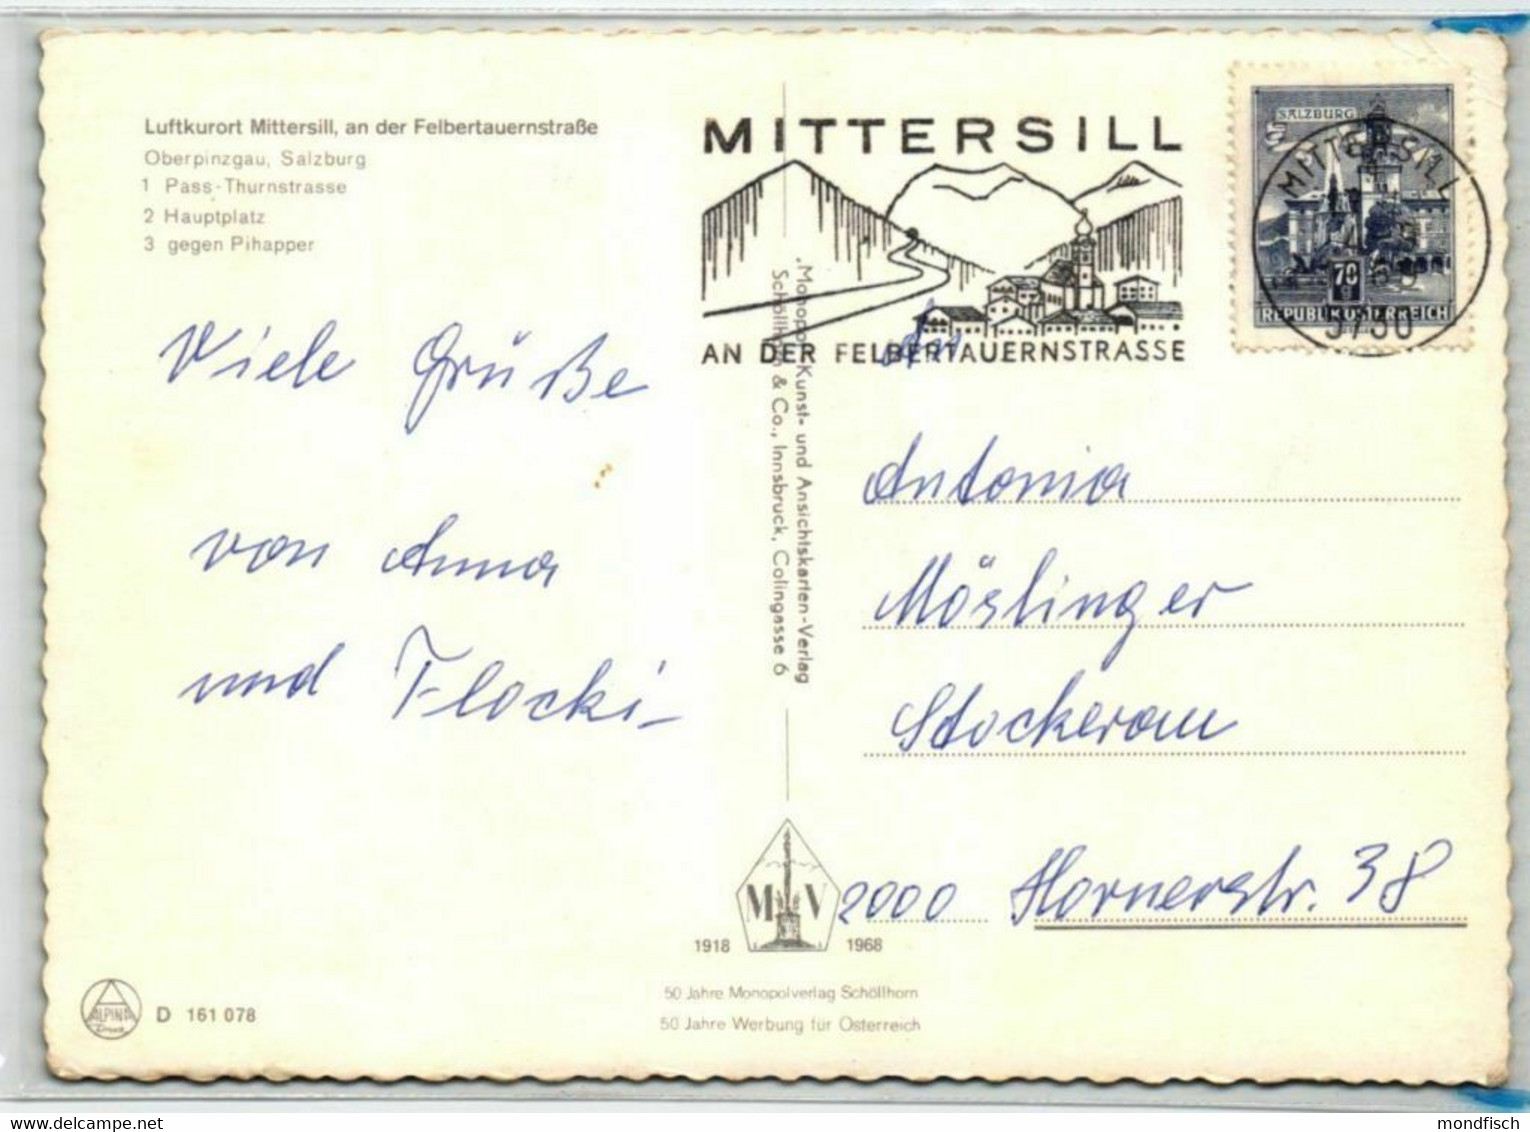 Luftkurort Mittersill, an der Felbertauernstraße
Oberpinzgau, Salzburg
1 Pass-Thurnstrasse
2 Hauptplatz
3 gegen Pihapper
Viele Grüße
von Anna
und Flocki
D 161 078
ALPINA
Druck
MITTERSILL
AN DER FELBERTAUERNSTRASSE
„Monopol“ Kunst- und Ansichtskarten-Verlag
Schöllhorn & Co., Innsbruck, Colingasse 6
SALZBURG
70
REPUBLIK ÖSTERREICH
MITTERSILL
5730
Antonia
Möslinger
Stockerau
2000 Hornerstr. 38
M V
1918 1968
50 Jahre Monopolverlag Schöllhorn
50 Jahre Werbung für Österreich
mondfisch